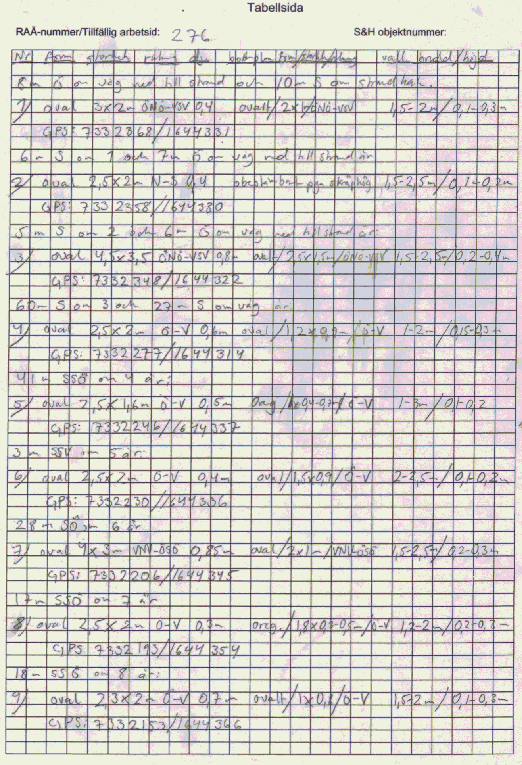 Tabellsida
RAÄ-nummer/Tillfällig arbetsid: 276 S&H objektnummer:
Nr form storlek riktn djup bottenplan form/storlek/riktning vall bredd/höjd
8m Ö om väg ned till strand och 10m S om strandkant.
1) oval 3x2m ÖNÖ-VSV 0,4 ovalt/2x1/ÖNÖ-VSV 1,5-2m/0,1-0,3m
GPS: 7332368/1644331
6m S om 1 och 7m Ö om väg ned till strand är
2) oval 2,5x2m N-S 0,4 obestämbar pga skräphög 1,5-2,5m/0,1-0,2m
GPS: 7332358/1644330
5m S om 2 och 6m Ö om väg ned till strand är
3) oval 4,5x3,5 ÖNÖ-VSV 0,8m oval/2,5x1,5m/ÖNÖ-VSV 1,5-2,5m/0,2-0,4m
GPS: 7332348/1644322
60m S om 3 och 27m S om väg är
4) oval 2,5x2m Ö-V 0,6m oval/1,2x0,9m/Ö-V 1-2m/0,15-0,3m
GPS: 7332277/1644314
41m SSÖ om 4 är:
5) oval 2,5x1,6m Ö-V 0,5m Oreg/1x0,4-0,7m/Ö-V 1-3m/0,1-0,2
GPS: 7332246/1644337
3m SSV om 5 är:
6) oval 2,5x2m Ö-V 0,4m oval/1,5x0,9/Ö-V 2-2,5m/0,1-0,2m
GPS: 7332230/1644336
28m SÖ om 6 är
7) oval 4x3m VNV-ÖSÖ 0,85m oval/2x1m/VNV-ÖSÖ 1,5-2,5m/0,2-0,3m
GPS: 7332206/1644345
17m SSÖ om 7 är
8) oval 2,5x2m Ö-V 0,7m oreg./1,8x0,3-0,5m/Ö-V 1,2-2m/0,2-0,3m
GPS 7332193/1644354
18m SSÖ om 8 är:
9) oval 2,3x2m Ö-V 0,7m ovalt/1x0,6/Ö-V 1,5-2m/0,1-0,3m
GPS: 7332153/1644366